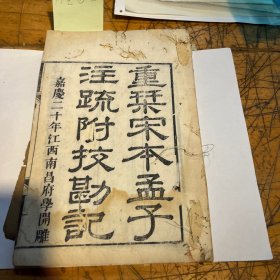 重栞宋本孟子
注疏附挍勘記
嘉慶二十年江西南昌府學開雕